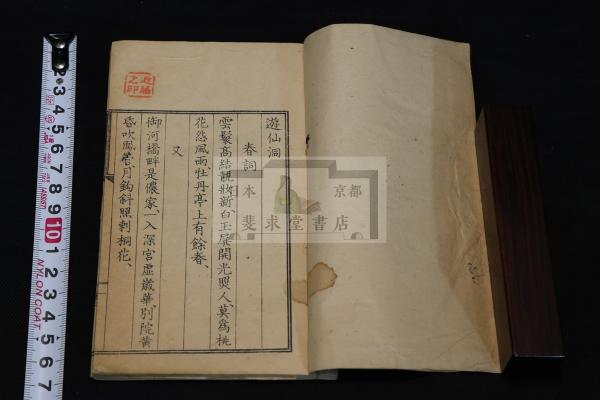 遊仙洞
春詞
雲鬟高結靚妝新、白玉屏開光照人、莫為桃
花怨風雨牡丹亭上有餘春、
又
御河橋畔是儂家、一入深宮虛歲華、別院黃
昏吹鳳管月鉤斜照刺桐花、
之印
日本
京都
斐求堂書店
2 3 4 5 6 7 8 9 10 1 2 3 4 5 6 7
NYLON COAT